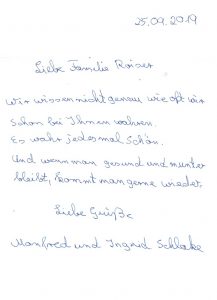 25.09.2019
Liebe Familie Roiser
Wir wissen nicht genau wie oft wir
schon bei Ihnen wahren.
Es wahr jedesmal Schön.
Und wenn man gesund und munter
bleibt, kommt man gerne wieder.
Liebe Grüße
Manfred und Ingrid Schlake